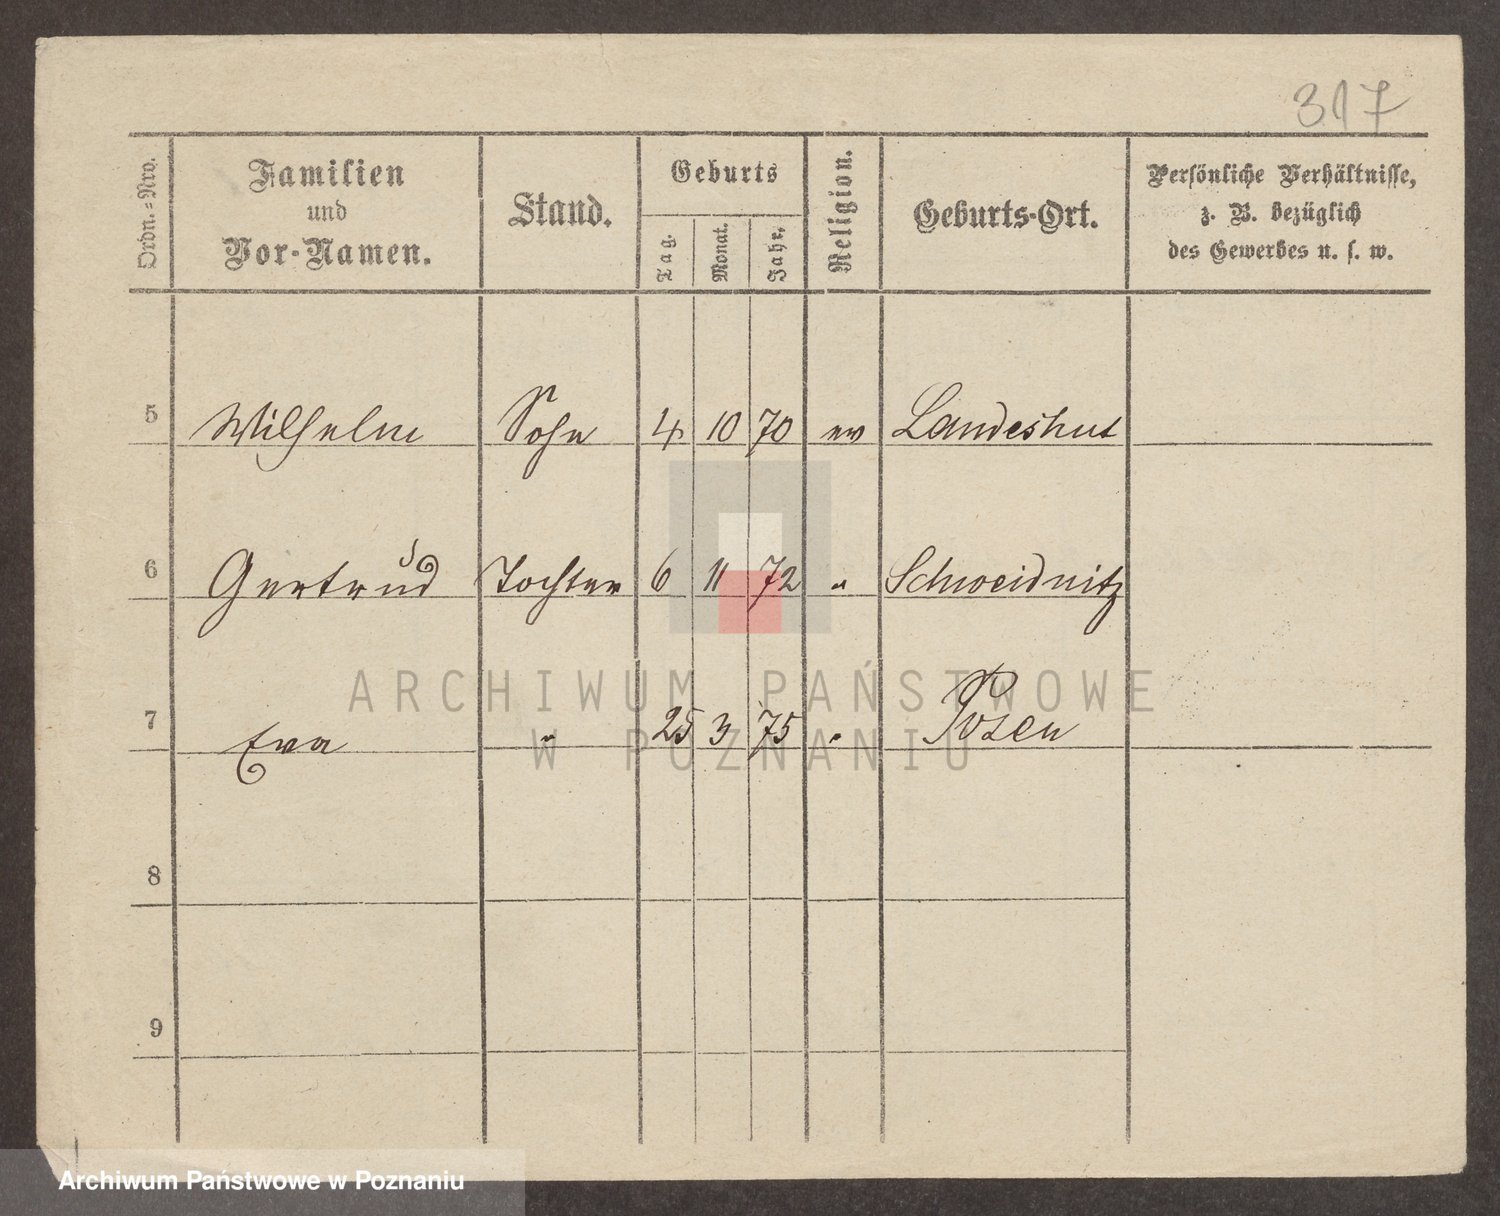 317
Ordn.-Nro.
Familien
und
Vor-Namen.
Stand.
Geburts
Tag.
Monat.
Jahr.
Religion.
Geburts-Ort.
Persönliche Verhältnisse,
z. B. bezüglich
des Gewerbes u. s. w.
5 Wilhelm Sohn 4 10 70 ev Landeshut
6 Gertrud Tochter 6 11 72 " Schweidnitz
7 Eva " 25 3 75 " Posen
8
9
ARCHIWUM PAŃSTWOWE
W POZNANIU
Archiwum Państwowe w Poznaniu